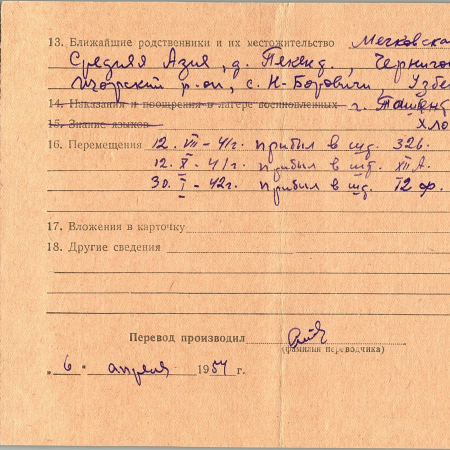 13. Ближайшие родственники и их местожительство Мечковская
Средняя Азия, д. Пекенд., Чернигов
Щорский р-он, с. Н-Боровичи Узбе
14. Наказания и поощрения в лагере военнопленных г. Ташкенд
15. Знание языков Хло
16. Перемещения 12. VII - 41г. прибыл в шд. 326.
12. X - 41г. прибыл в шт. XII А.
30. I - 42г. прибыл в шд. 12 ф.
17. Вложения в карточку
18. Другие сведения
Перевод производил
(фамилия переводчика)
"6" апреля 1954 г.